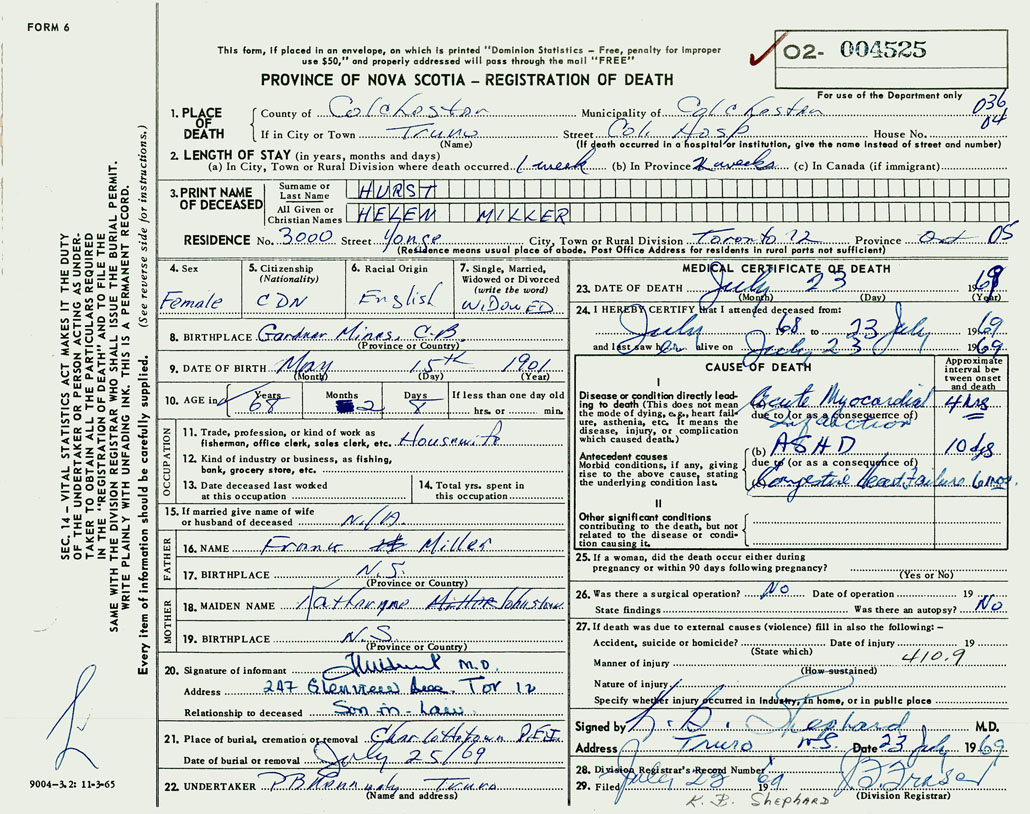 FORM 6
This form, if placed in an envelope, on which is printed "Dominion Statistics – Free, penalty for improper
use $50," and properly addressed will pass through the mail "FREE"
PROVINCE OF NOVA SCOTIA – REGISTRATION OF DEATH
O2- 004525
For use of the Department only
036
04
1. PLACE OF DEATH
County of Colchester Municipality of Colchester
If in City or Town Truro Street Col. Hosp House No.
(Name) (If death occurred in a hospital or institution, give the name instead of street and number)
2. LENGTH OF STAY (in years, months and days)
(a) In City, Town or Rural Division where death occurred 1 week (b) In Province 2 weeks (c) In Canada (if immigrant)
3. PRINT NAME OF DECEASED
Surname or Last Name HURST
All Given or Christian Names HELEN MILLER
RESIDENCE No. 3000 Street Yonge City, Town or Rural Division Toronto 12 Province Ont 05
(Residence means usual place of abode. Post Office Address for residents in rural parts not sufficient)
4. Sex Female
5. Citizenship (Nationality) CDN
6. Racial Origin English
7. Single, Married, Widowed or Divorced (write the word) WIDOWED
8. BIRTHPLACE Gardner Mines, C.B.
(Province or Country)
9. DATE OF BIRTH May 15th 1901
(Month) (Day) (Year)
10. AGE in Years 68 Months 2 Days 8 If less than one day old hrs. or min.
OCCUPATION
11. Trade, profession, or kind of work as fisherman, office clerk, sales clerk, etc. Housewife
12. Kind of industry or business, as fishing, bank, grocery store, etc.
13. Date deceased last worked at this occupation
14. Total yrs. spent in this occupation
15. If married give name of wife or husband of deceased N/A
FATHER
16. NAME Frank Miller
17. BIRTHPLACE N.S.
(Province or Country)
MOTHER
18. MAIDEN NAME Katheryne Miller Johnston
19. BIRTHPLACE N.S.
(Province or Country)
20. Signature of informant M.D.
Address 247 Glenview Ave. Tor 12
Relationship to deceased Son-in-Law
21. Place of burial, cremation or removal Charlottetown P.E.I.
Date of burial or removal July 25/69
22. UNDERTAKER Truro
(Name and address)
MEDICAL CERTIFICATE OF DEATH
23. DATE OF DEATH July 23 1969
(Month) (Day) (Year)
24. I HEREBY CERTIFY that I attended deceased from:
July 68 to 23 July 1969
and last saw her alive on July 23 1969
CAUSE OF DEATH
Approximate interval between onset and death
I
Disease or condition directly leading to death (This does not mean the mode of dying, e.g., heart failure, asthenia, etc. It means the disease, injury, or complication which caused death.)
(a) Acute Myocardial Infarction 4 hrs
due to (or as a consequence of)
Antecedent causes
Morbid conditions, if any, giving rise to the above cause, stating the underlying condition last.
(b) ASHD 10 dys
due to (or as a consequence of)
(c) Congestive Heart Failure 6 mos.
II
Other significant conditions contributing to the death, but not related to the disease or condition causing it.
25. If a woman, did the death occur either during pregnancy or within 90 days following pregnancy?
(Yes or No)
26. Was there a surgical operation? No Date of operation 19
State findings Was there an autopsy? No
27. If death was due to external causes (violence) fill in also the following: –
Accident, suicide or homicide? Date of injury 19
(State which)
Manner of injury 410.9
(How sustained)
Nature of injury
Specify whether injury occurred in Industry, in home, or in public place
Signed by K. B. Shephard M.D.
Address Truro N.S. Date 23 July 1969
28. Division Registrar's Record Number
29. Filed July 28 1969 Fraser
(Division Registrar)
K. B. SHEPHARD
SEC. 14 – VITAL STATISTICS ACT MAKES IT THE DUTY
OF THE UNDERTAKER OR PERSON ACTING AS UNDER-
TAKER TO OBTAIN ALL THE PARTICULARS REQUIRED
IN THE "REGISTRATION OF DEATH" AND TO FILE THE
SAME WITH THE DIVISION REGISTRAR WHO SHALL ISSUE THE BURIAL PERMIT.
WRITE PLAINLY WITH UNFADING INK. THIS IS A PERMANENT RECORD.
Every item of information should be carefully supplied. (See reverse side for instructions.)
9004–3.2: 11-3-65